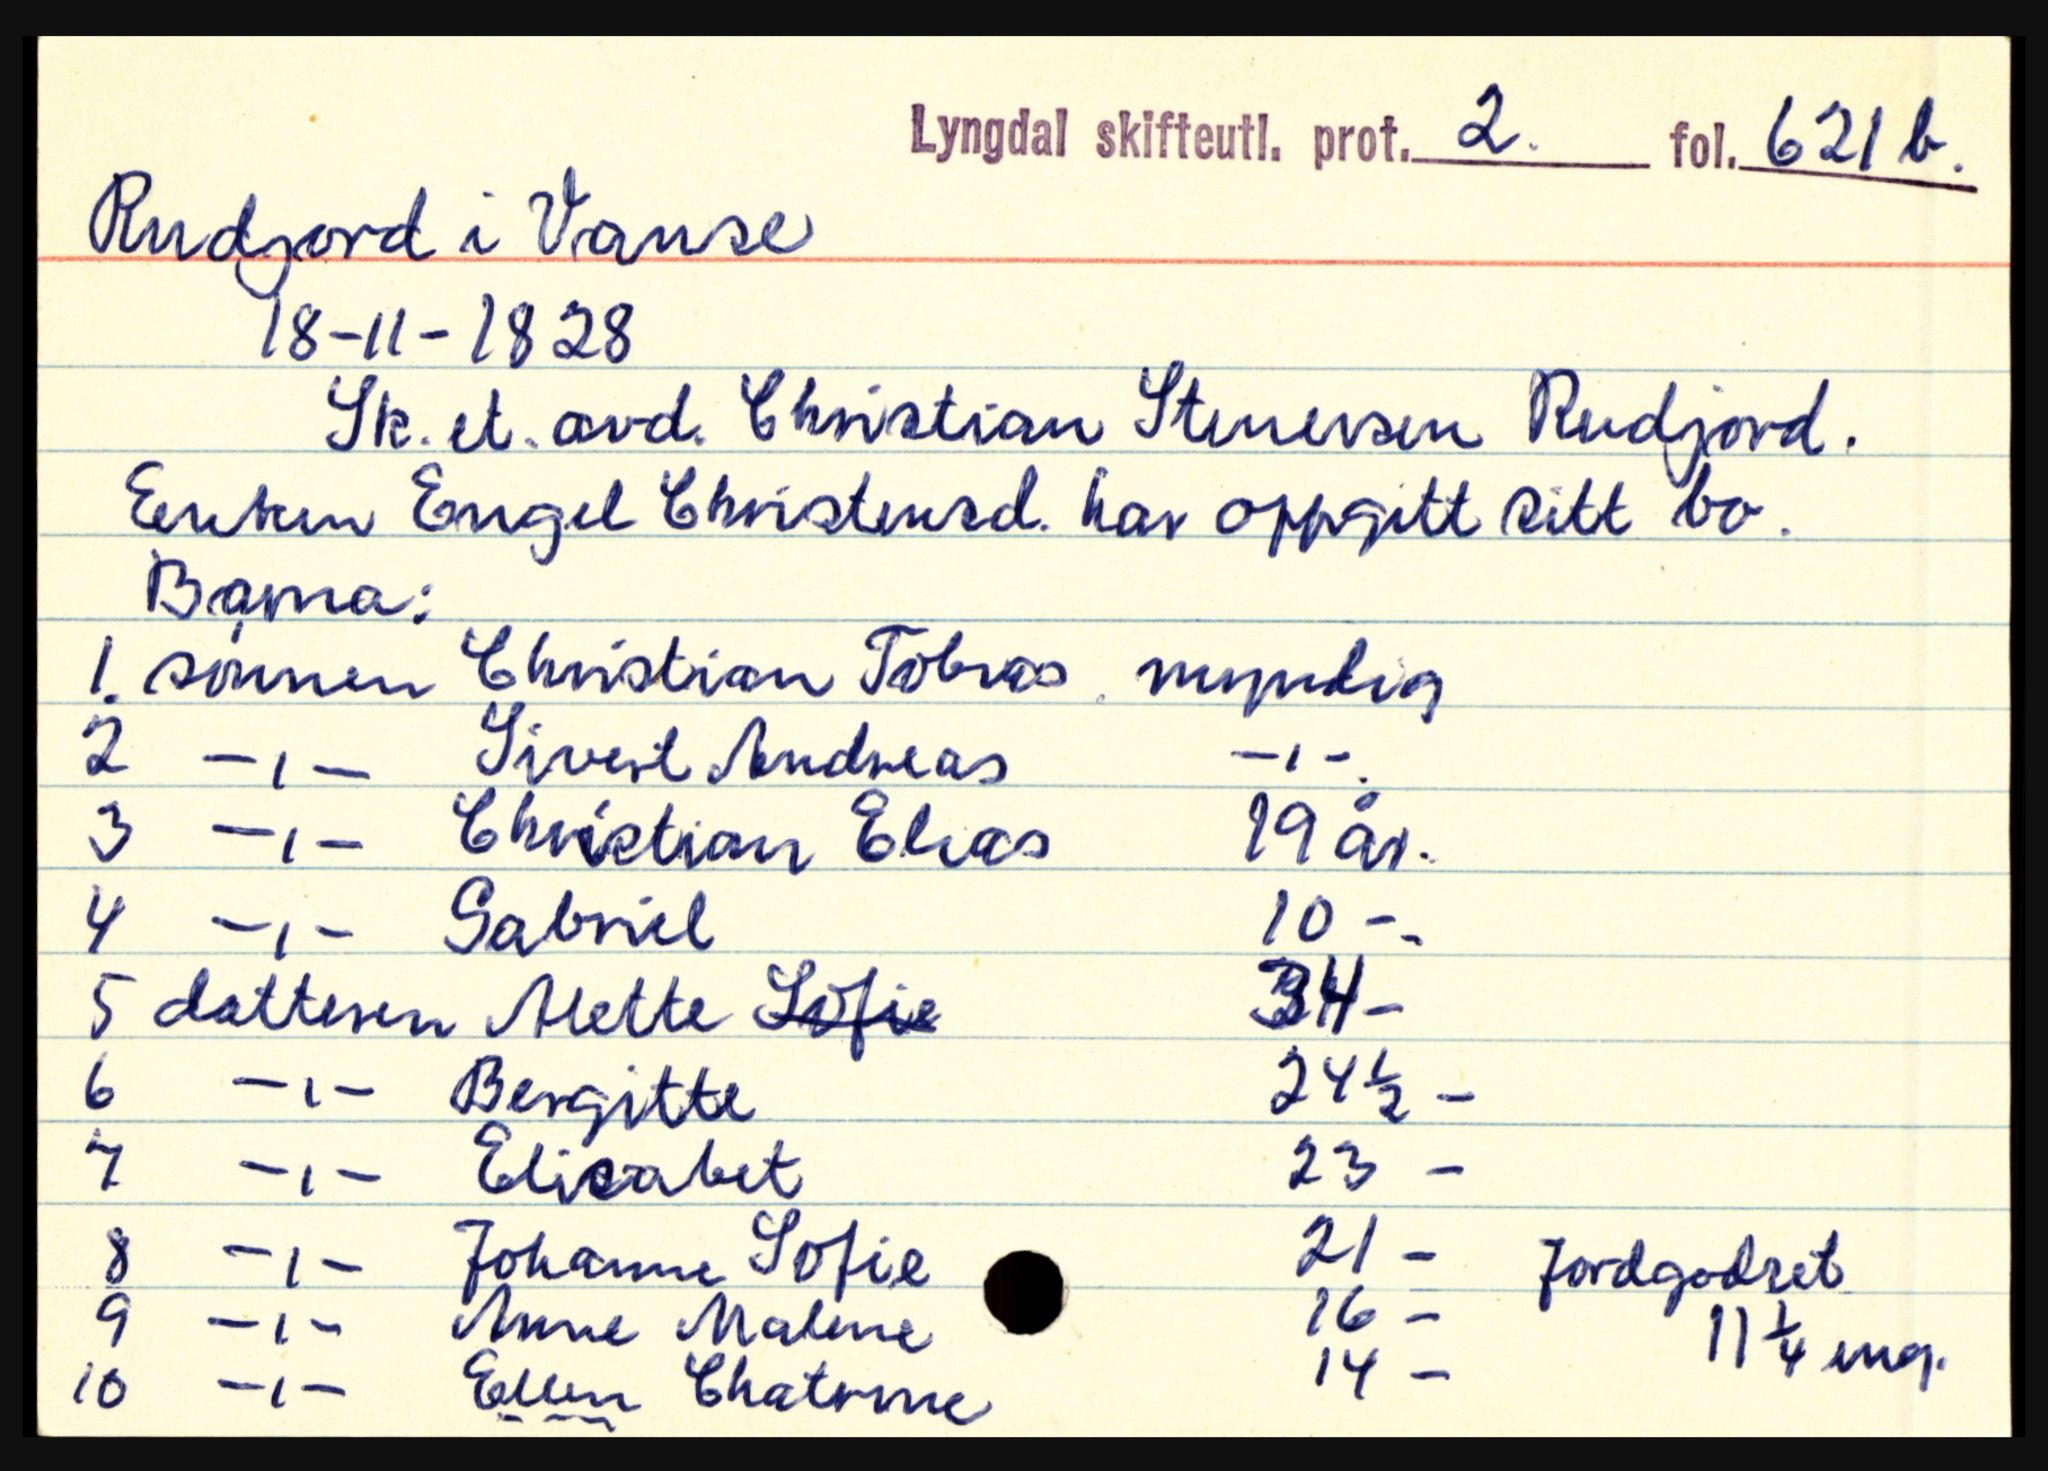 Lyngdal skifteutl. prot. 2. fol. 621 b.
Rudjord i Vanse
18-11-1828
Sk. et. avd. Christian Stenersen Rudjord.
Enken Engel Christensd. har oppgitt sitt bo.
Barna:
1. sønnen Christian Tobias myndig
2 -ı- Sivert Andreas -ı-.
3 -ı- Christian Elias 19 år.
4 -ı- Gabriel 10 -.
5 datteren Mette Sofie 34 -
6 -ı- Bergitte 24 1/2 -
7 -ı- Elisabet 23 -
8 -ı- Johanne Sofie 21 - Jordgodset
9 -ı- Anne Malene 16 - 11 1/4 eng.
10 -ı- Ellen Chatrine 14 -